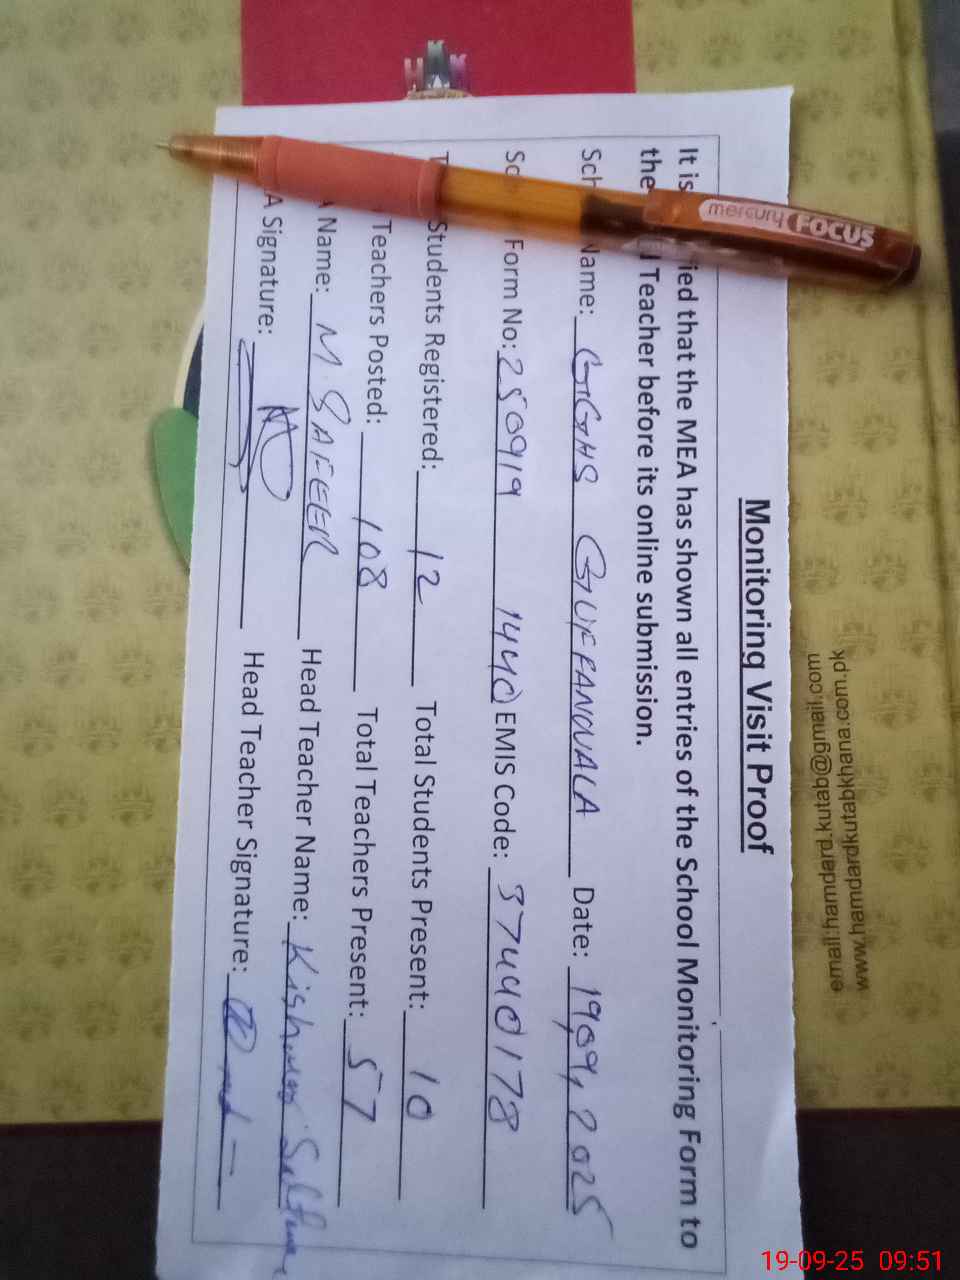 www.hamdardkutabkhana.com.pk
email:hamdard.kutab@gmail.com
Monitoring Visit Proof
It is ied that the MEA has shown all entries of the School Monitoring Form to
the Teacher before its online submission.
Sch Name: GGHS GUFFANWALA Date: 19,09,2025
Form No: 250919 1440 EMIS Code: 37440178
Students Registered: 12 Total Students Present: 10
Teachers Posted: 108 Total Teachers Present: 57
Name: M. SAFEER Head Teacher Name:
A Signature: Head Teacher Signature:
mercury FOCUS
19-09-25 09:51